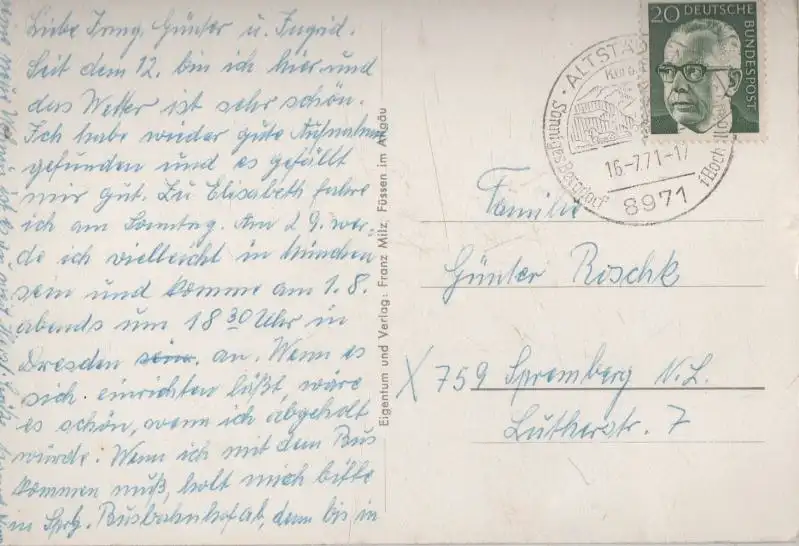 Liebe Irmg. Günter u. Ingrid.
Seit dem 12. bin ich hier und
das Wetter ist sehr schön.
Ich habe wieder gute Aufnahme
gefunden und es gefällt
mir gut. Zu Elisabeth fahre
ich am Sonntag. Am 29. wer-
de ich vielleicht in München
sein und komme am 1. 8.
abends um 18 30 Uhr in
Dresden sein. an. Wenn es
sich einrichten läßt, wäre
es schön, wenn ich abgeholt
würde. Wenn ich mit dem Bus
kommen muß, holt mich bitte
in Sprbg. Busbahnhof ab, denn bis in
meine neue
Eigentum und Verlag: Franz Milz, Füssen im Allgäu
20 DEUTSCHE
BUNDESPOST
ALTSTÄD
Sonniges Bergdorf
16.-7.71.-17
8971
Familie
Günter Rischk
X 759 Spremberg N.L.
Lutherstr. 7